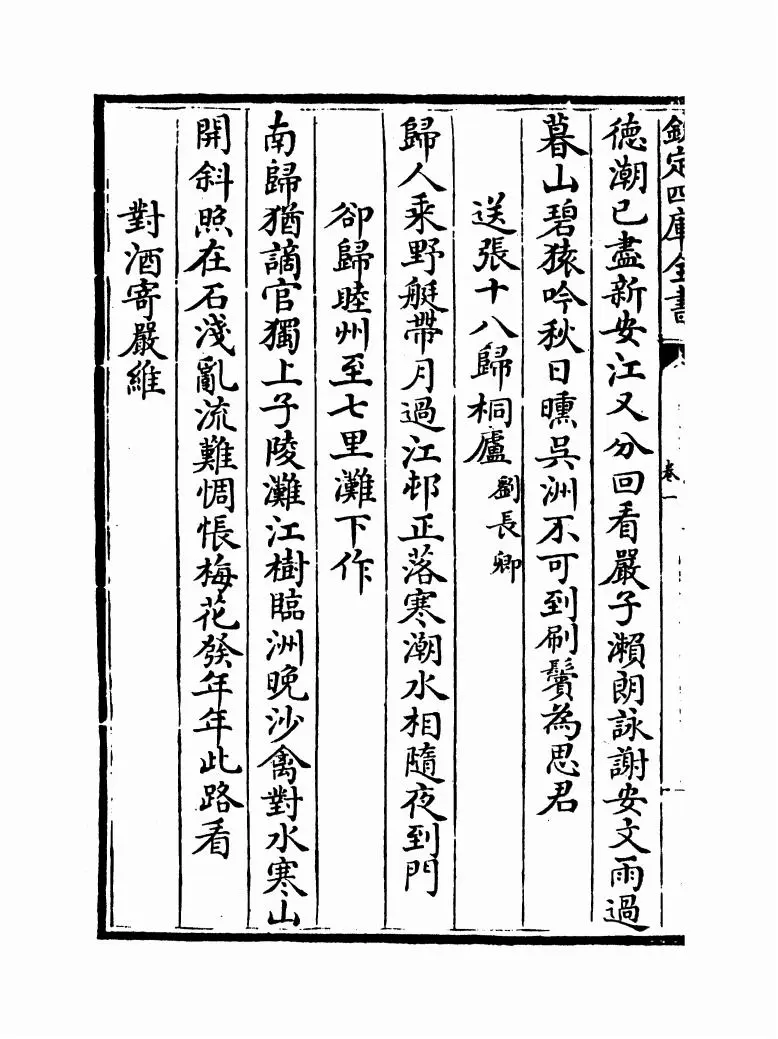 欽定四庫全書
卷一
德潮已盡新安江又分回看嚴子瀨朗詠謝安文雨過
暮山碧猿吟秋日曛吳洲不可到刷鬢為思君
送張十八歸桐廬 劉長卿
歸人乘野艇帶月過江邨正落寒潮水相隨夜到門
卻歸睦州至七里灘下作
南歸猶謫官獨上子陵灘江樹臨洲晚沙禽對水寒山
開斜照在石淺亂流難惆悵梅花發年年此路看
對酒寄嚴維